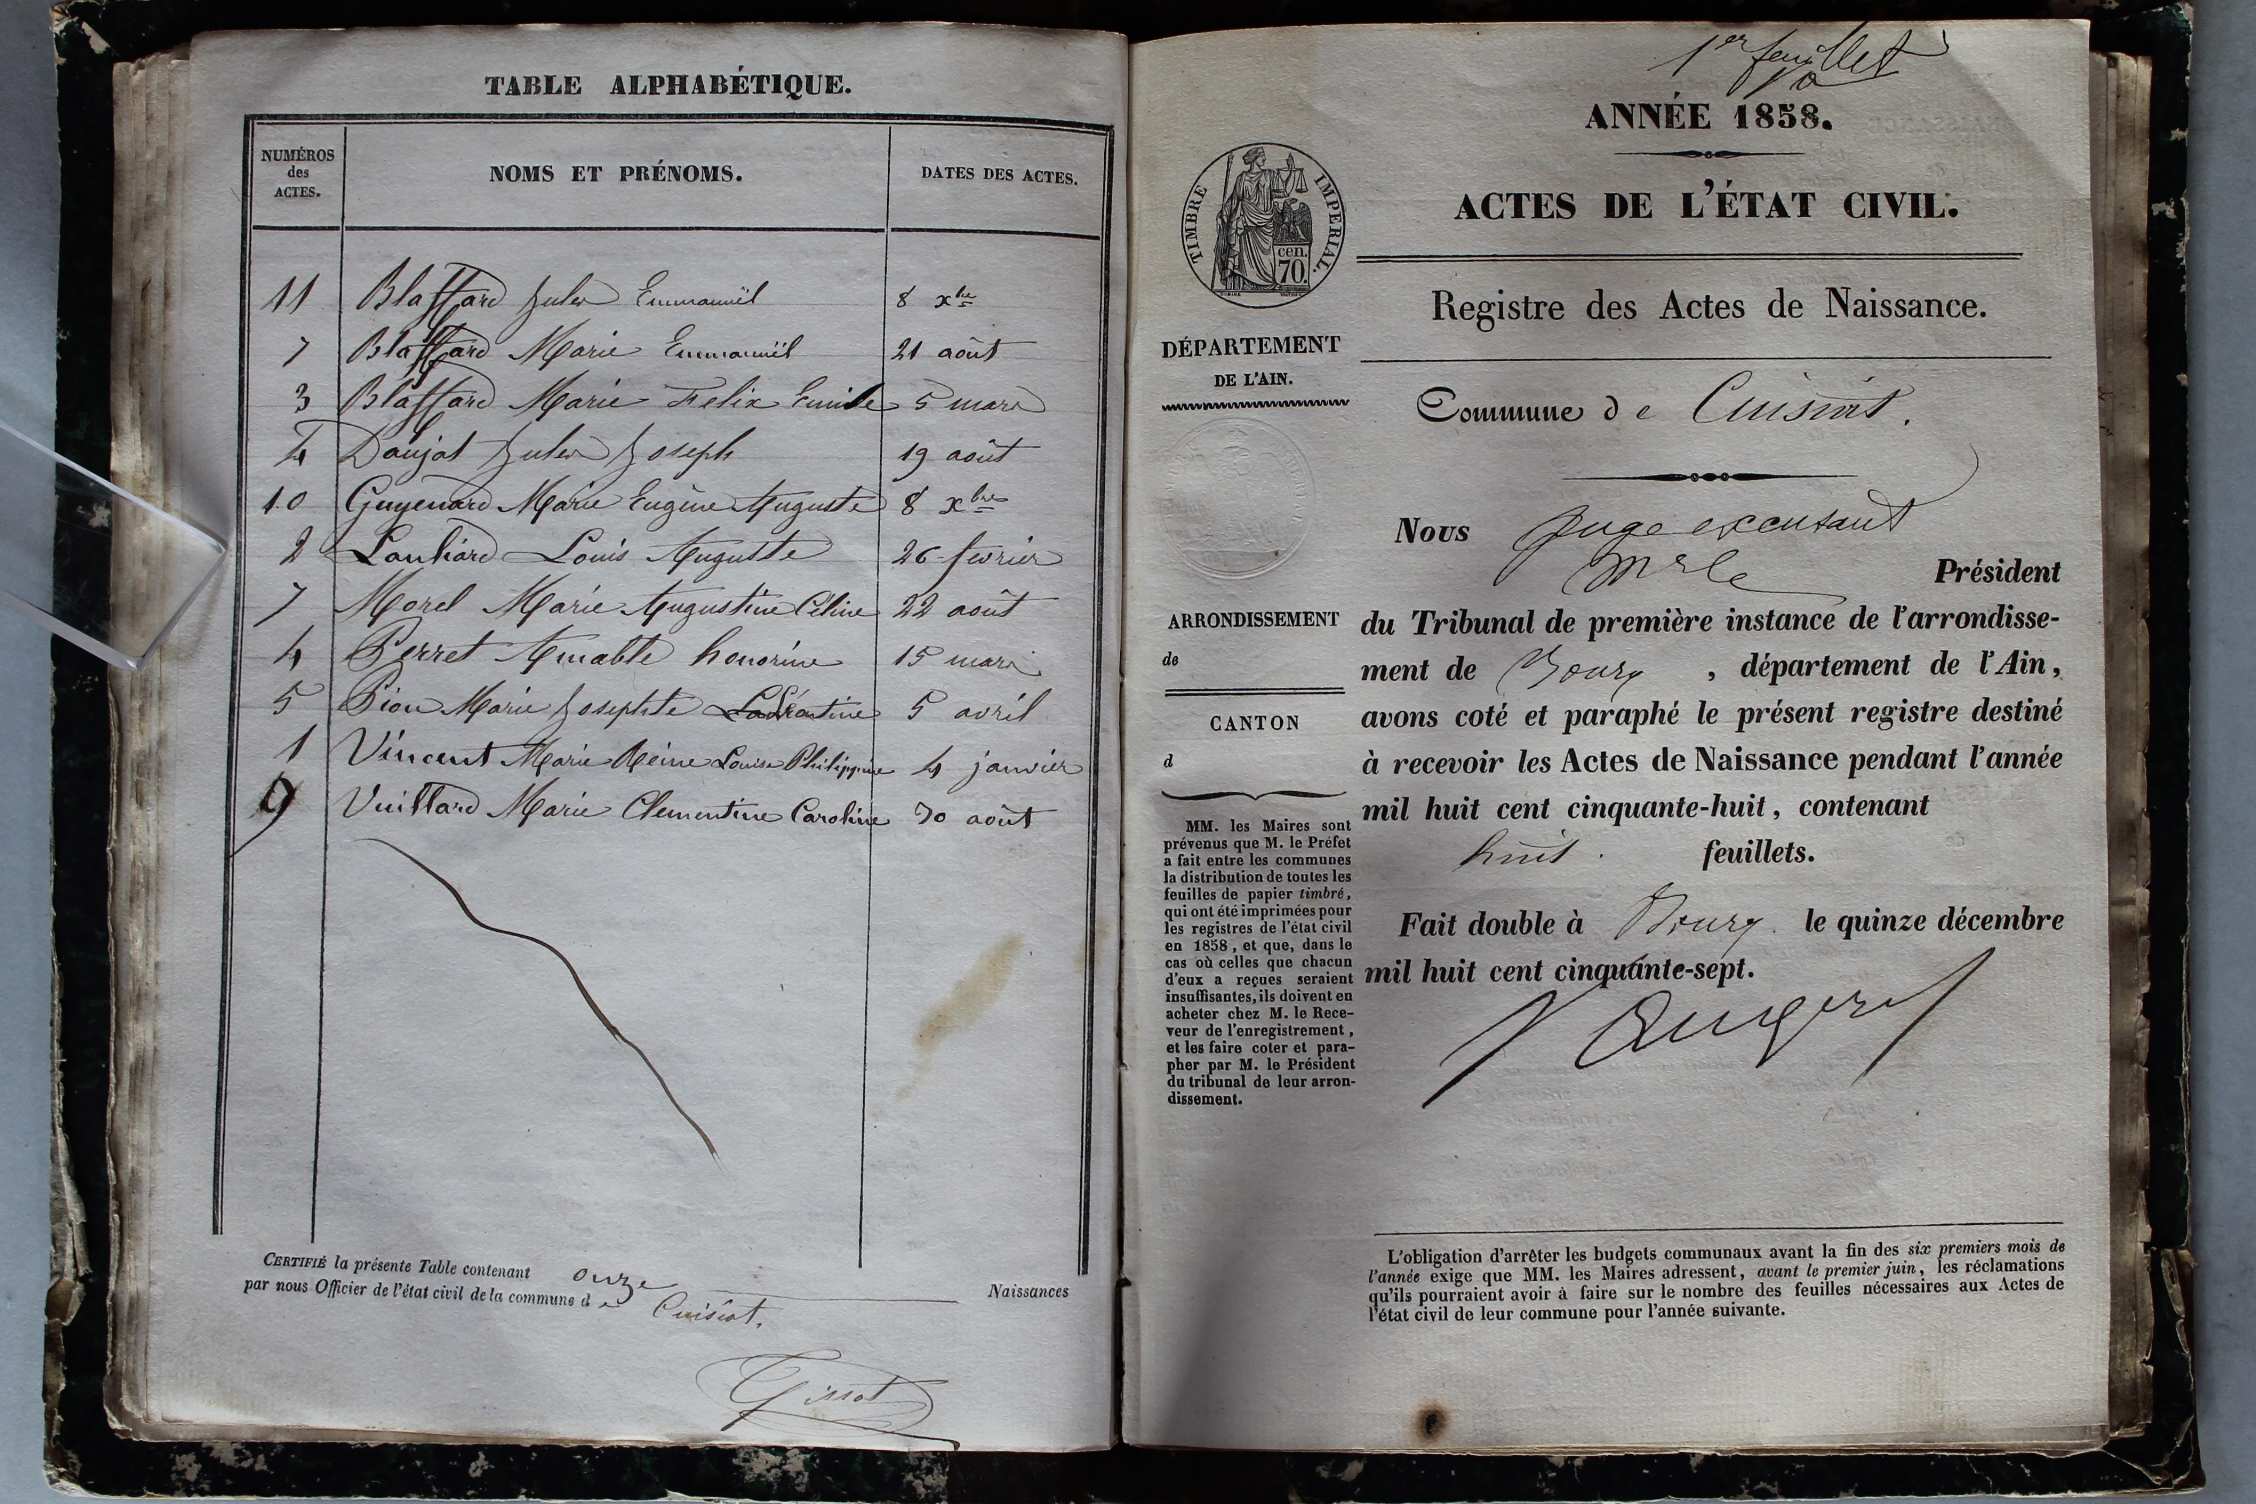 TABLE ALPHABÉTIQUE.
NUMÉROS
des
ACTES.
NOMS ET PRÉNOMS.
DATES DES ACTES.
11 Blaffard Jules Emmanuël 8 xbre
7 Blaffard Marie Emmanuël 21 août
3 Blaffard Marie Felix Emile 5 mars
Daujat Jules Joseph 19 août
10 Guyenard Marie Eugène Auguste 8 xbre
2 Louis Auguste 26 fevrier
7 Morel Marie Augustine Céline 22 août
4 Perret Amable honorine 15 mars
5 Pion Marie Josephte 5 avril
1 Vincent Marie Reine Louise Philippine 4 janvier
9 Vuillard Marie Clementine Caroline 30 août
CERTIFIÉ la présente Table contenant onze Naissances
par nous Officier de l'état civil de la commune de Cuisiat.
1er feuillet
ANNÉE 1858.
ACTES DE L'ÉTAT CIVIL.
TIMBRE IMPERIAL.
cen.
70.
Registre des Actes de Naissance.
DÉPARTEMENT
DE L'AIN.
Commune de Cuisiat.
Nous juge
Président
du Tribunal de première instance de l'arrondisse-
ment de Bourg, département de l'Ain,
avons coté et paraphé le présent registre destiné
à recevoir les Actes de Naissance pendant l'année
mil huit cent cinquante-huit, contenant
huit. feuillets.
Fait double à Bourg. le quinze décembre
mil huit cent cinquante-sept.
ARRONDISSEMENT
de
CANTON
d
MM. les Maires sont
prévenus que M. le Préfet
a fait entre les communes
la distribution de toutes les
feuilles de papier timbré,
qui ont été imprimées pour
les registres de l'état civil
en 1858, et que, dans le
cas où celles que chacun
d'eux a reçues seraient
insuffisantes, ils doivent en
acheter chez M. le Rece-
veur de l'enregistrement,
et les faire coter et para-
pher par M. le Président
du tribunal de leur arron-
dissement.
L'obligation d'arrêter les budgets communaux avant la fin des six premiers mois de
l'année exige que MM. les Maires adressent, avant le premier juin, les réclamations
qu'ils pourraient avoir à faire sur le nombre des feuilles nécessaires aux Actes de
l'état civil de leur commune pour l'année suivante.